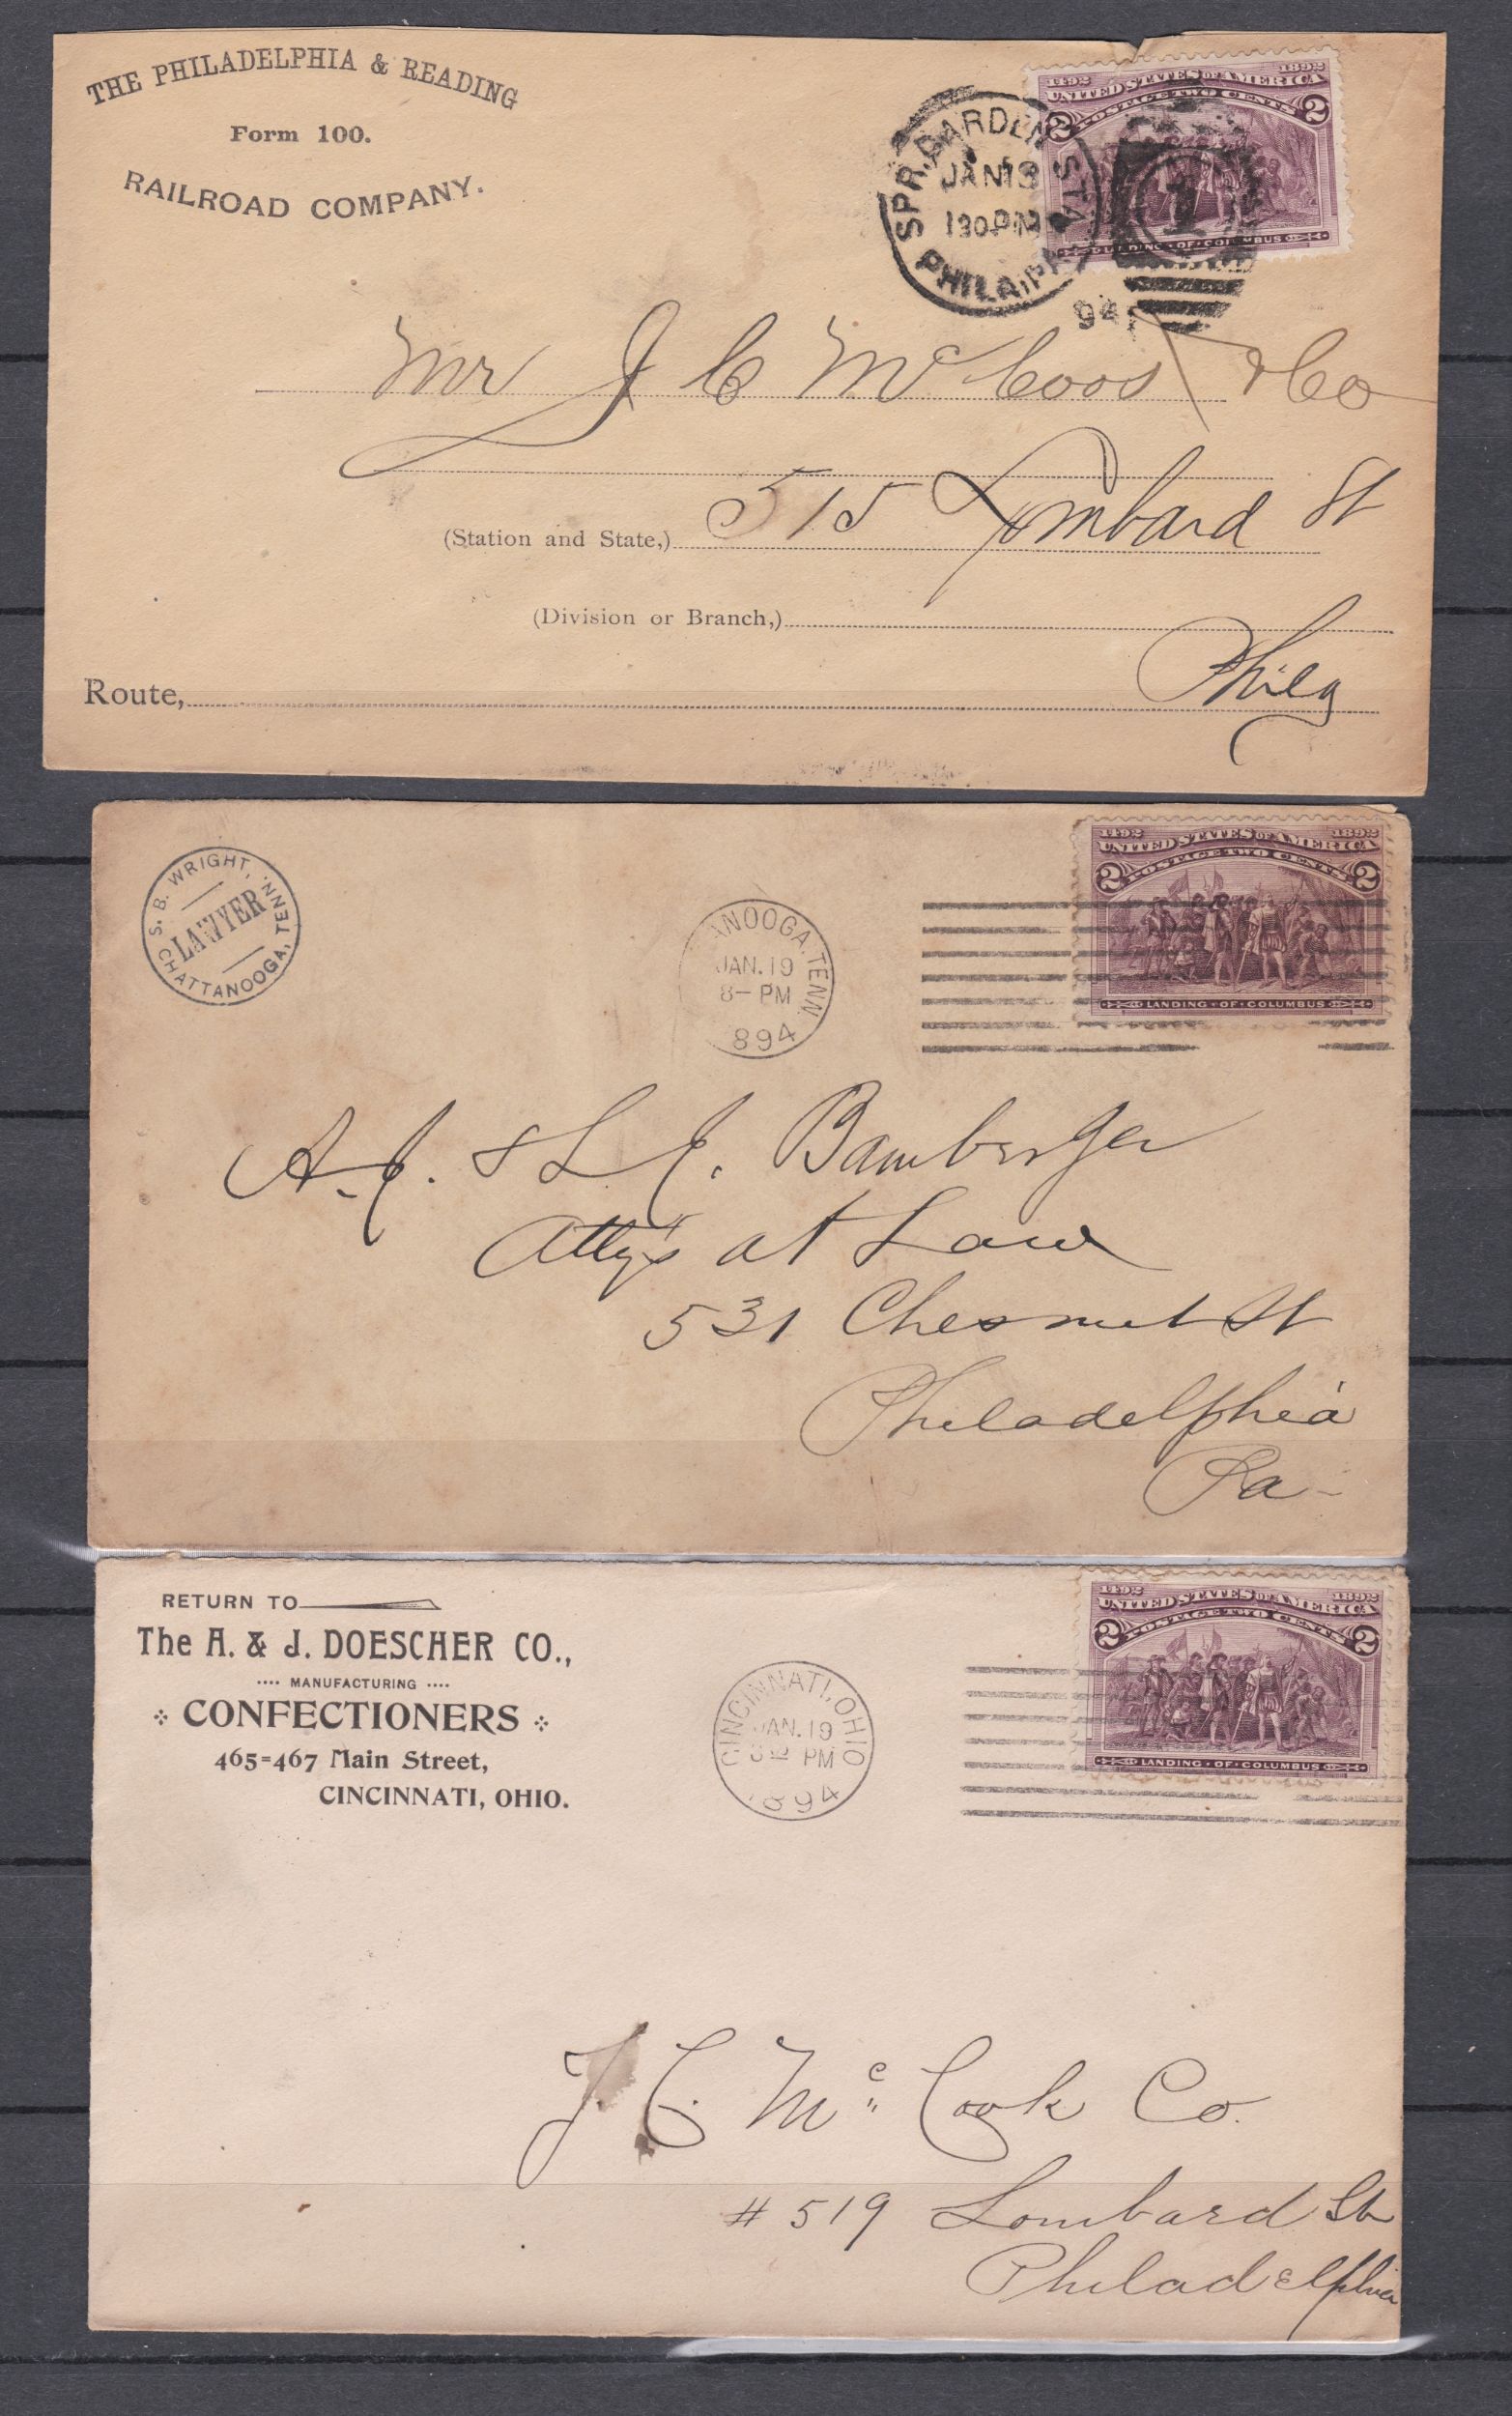 THE PHILADELPHIA & READING
Form 100.
RAILROAD COMPANY.
1492 1892
UNITED STATES OF AMERICA
POSTAGE TWO CENTS
2 2
LANDING OF COLUMBUS
SPR. GARDEN STA.
JAN 18
130 PM
PHILA, PA
94
1
Mr J C McCoos & Co
(Station and State,) 515 Lombard St
(Division or Branch,)
Phila
Route,
S. B. WRIGHT,
LAWYER
CHATTANOOGA, TENN.
ANOOGA, TENN.
JAN. 19
8- PM
894
1492 1892
UNITED STATES OF AMERICA
POSTAGE TWO CENTS
2 2
LANDING OF COLUMBUS
A. J. & L. J. Bamberger
Atty's at Law
531 Chesnut St
Philadelphia
Pa-
RETURN TO
The A. & J. DOESCHER CO.,
MANUFACTURING
CONFECTIONERS
465=467 Main Street,
CINCINNATI, OHIO.
CINCINNATI, OHIO
JAN. 19
PM
1894
1492 1892
UNITED STATES OF AMERICA
POSTAGE TWO CENTS
2 2
LANDING OF COLUMBUS
J. C. Mc Cook Co.
# 519 Lombard St
Philadelphia